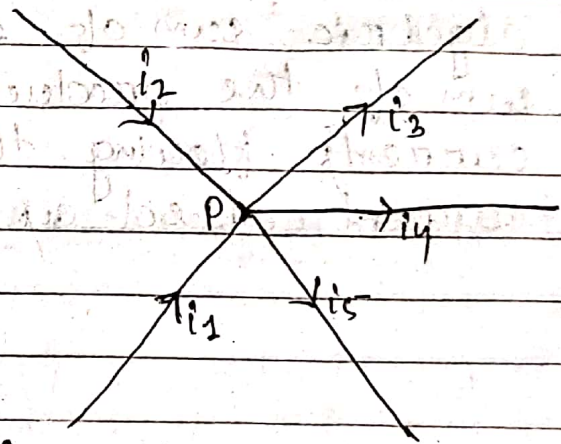 i2
i3
P
i4
i1
i5